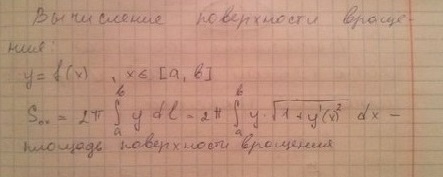 Вычисление поверхности враще-
ния:
y = f(x) , x ∈ [a, b]
Sox = 2π ∫ₐᵇ y dl = 2π ∫ₐᵇ y·√(1 + y'(x)²) dx –
площадь поверхности вращения